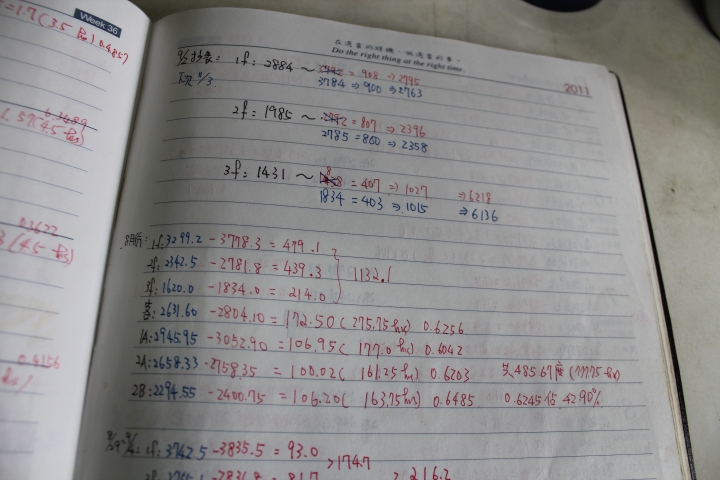 =1.7(3.5
0.4857
Week 36
在適當的時機,做適當的事。
Do the right thing at the right time.
2011
9/2抄表: 1f: 2884 ~ = 908 ⇒ 2795
3784 ⇒ 900 ⇒ 2763
2f: 1985 ~ = 807 ⇒ 2396
2785 = 800 ⇒ 2358
3f: 1431 ~ = 407 ⇒ 1027 ⇒ 6218
1834 = 403 ⇒ 1015 ⇒ 6136
8月份: 1f: 3299.2 - 3778.3 = 479.1
2f: 2342.5 - 2781.8 = 439.3 1132.1
3f: 1620.0 - 1834.0 = 214.0
2631.60 - 2804.10 = 172.50 (275.75 hr) 0.6256
1A: 2945.95 - 3052.90 = 106.95 (177.0 hr) 0.6042
2A: 2658.33 - 2758.35 = 100.02 (161.25 hr) 0.6203 共485.67度 (777.75 hr)
2B: 2294.55 - 2400.75 = 106.20 (163.75 hr) 0.6485 0.6245 佔 42.90%
1f: 3742.5 - 3835.5 = 93.0
174.7
216.2